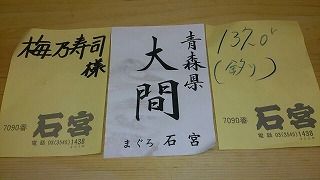 梅乃寿司
様
7090番
石宮
電話 03(3545)1438
青森県
大間
まぐろ 石宮
137.0㌔
(釣り)
7090番
石宮
電話 03(3545)1438